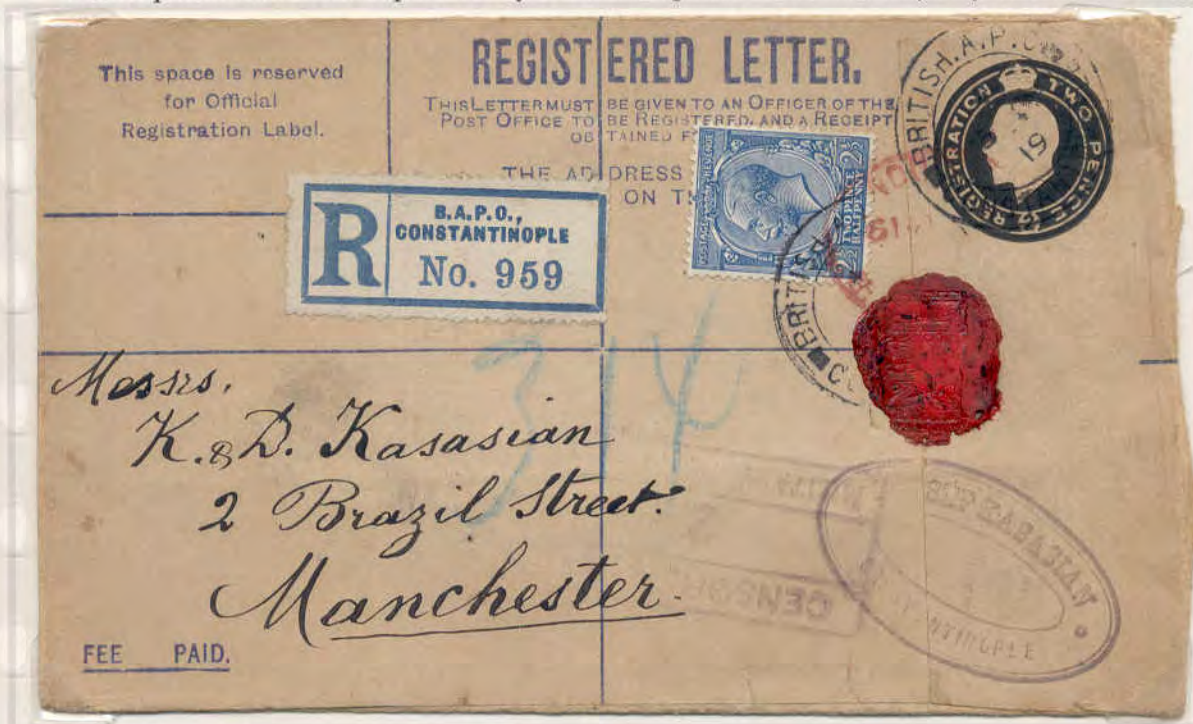 This space is reserved
for Official
Registration Label.
REGISTERED LETTER.
THIS LETTER MUST BE GIVEN TO AN OFFICER OF THE
POST OFFICE TO BE REGISTERED, AND A RECEIPT
OBTAINED F
THE ADDRESS
ON T
BRITISH.A.P.O.
REGISTRATION TWO PENCE
19
POSTAGE REVENUE
TWO PENCE
HALFPENNY
2½ 2½
R
B.A.P.O.,
CONSTANTINOPLE
No. 959
BRITISH
314
Messrs.
K. & D. Kasasian
2 Brazil Street.
Manchester.
CENSOR
ZABASIAN
NTINOPLE
FEE PAID.